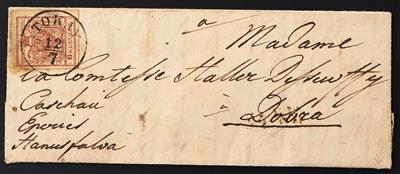 TOKAY
12
7
à
Madame
la Comtesse Haller Dessewffy
Caschau
à
Eperies
Dobra
Hanusfalva